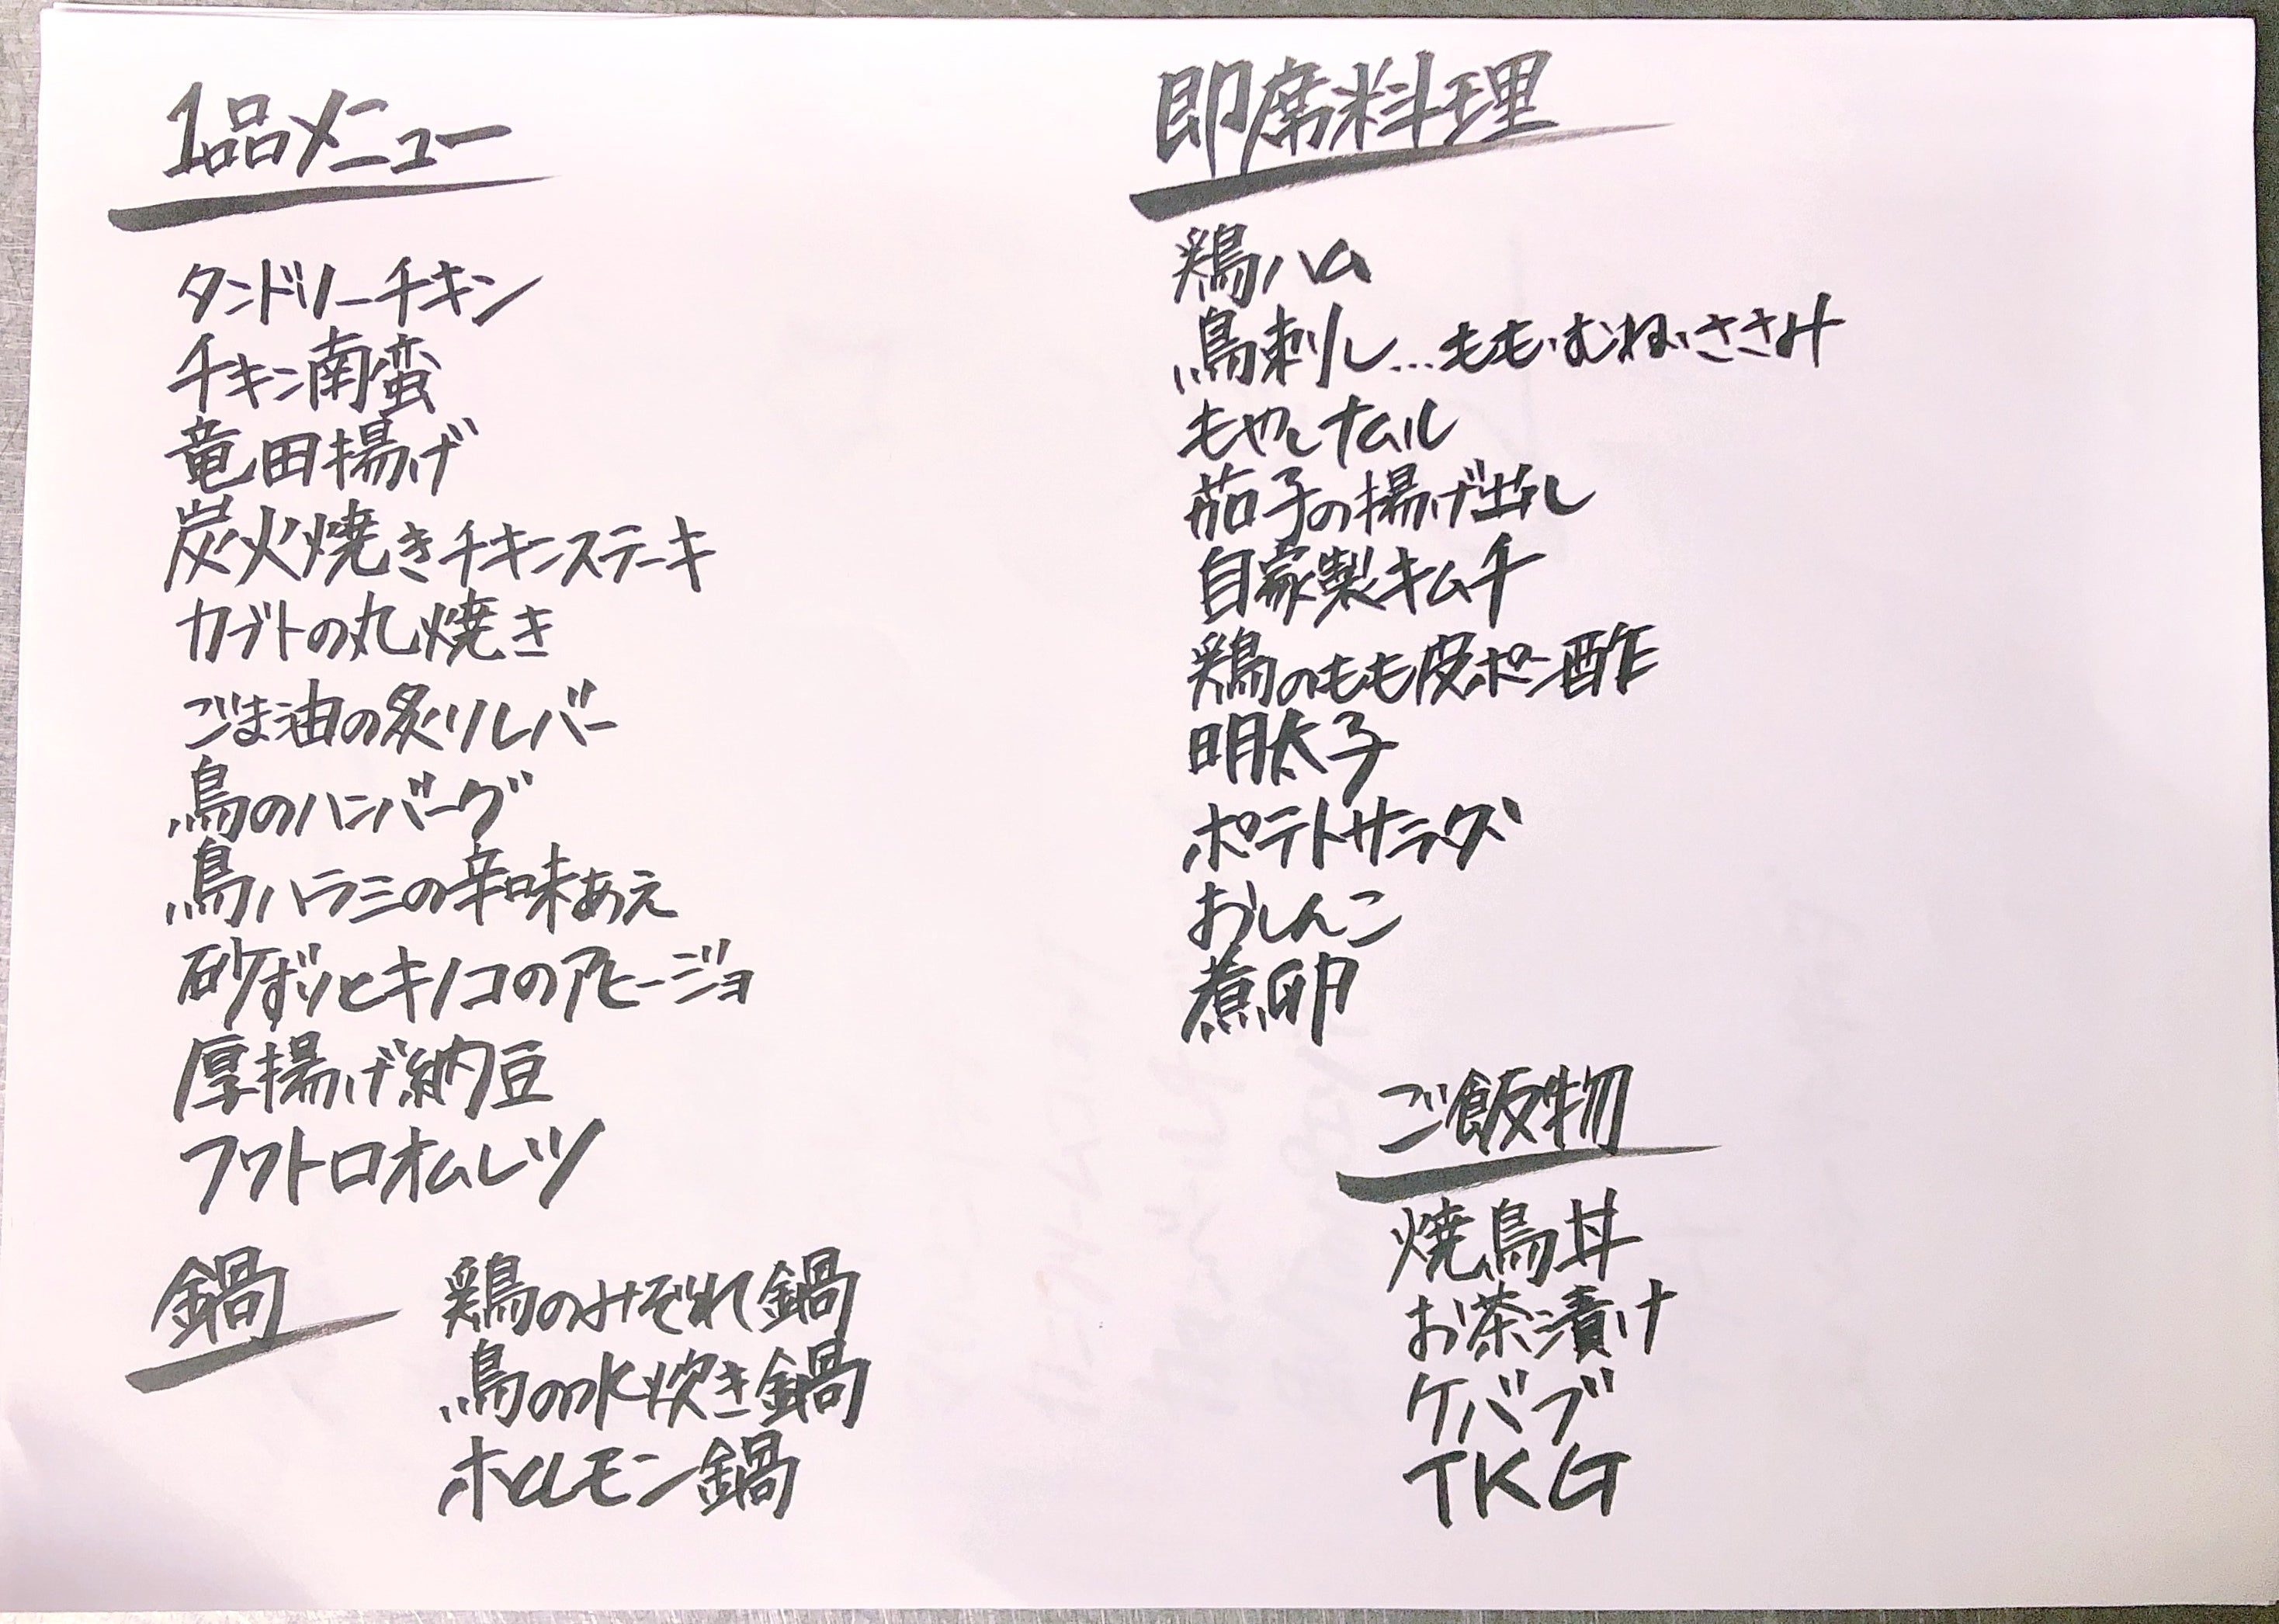 1品メニュー
タンドリーチキン
チキン南蛮
竜田揚げ
炭火焼きチキンステーキ
カブトの丸焼き
ごま油の炙りレバー
鳥のハンバーグ
鳥ハラミの辛味あえ
砂ずりとキノコのアヒージョ
厚揚げ納豆
フワトロオムレツ
鍋
鶏のみぞれ鍋
鳥の水炊き鍋
ホルモン鍋
即席料理
鶏ハム
鳥刺し…もも・むね・ささみ
もやしナムル
茄子の揚げ出し
自家製キムチ
鶏のもも皮ポン酢
明太子
ポテトサラダ
おしんこ
煮卵
ご飯物
焼鳥丼
お茶漬け
ケバブ
TKG